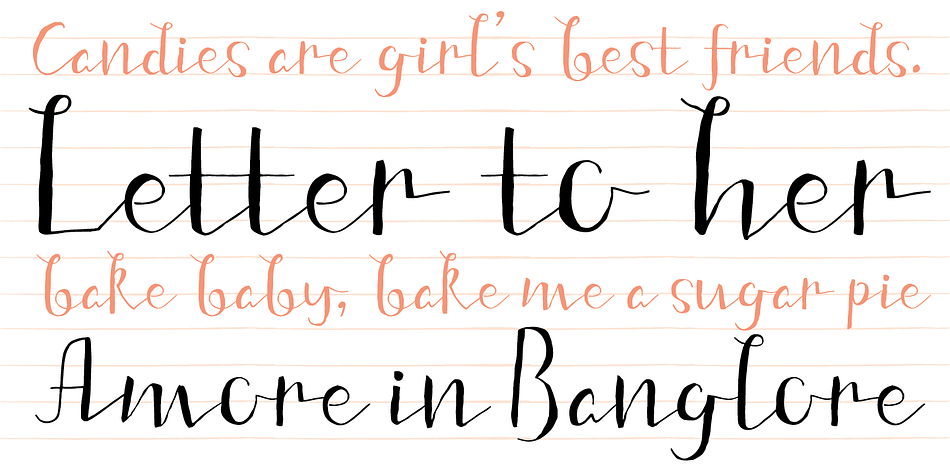 Candies are girl's best friends.
Letter to her
bake baby, bake me a sugar pie
Amore in Banglore